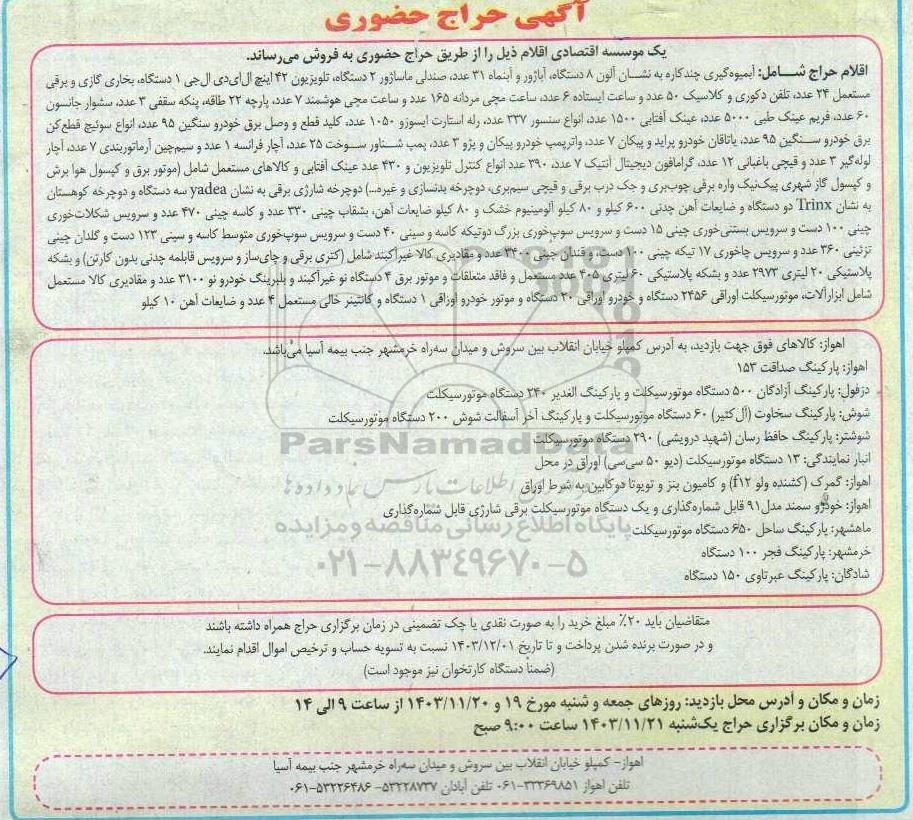 آگهی حراج حضوری
یک موسسه اقتصادی اقلام ذیل را از طریق حراج حضوری به فروش می‌رساند.
اقلام حراج شامل: آبمیوه‌گیری چندکاره به نشان آلون ۸ دستگاه، آباژور و آبنماه ۳۱ عدد، صندلی ماساژور ۲ دستگاه، تلویزیون ۴۲ اینچ ال‌ای‌دی ال‌جی ۱ دستگاه، بخاری گازی و برقی
مستعمل ۲۴ عدد، تلفن دکوری و کلاسیک ۵۰ عدد و ساعت ایستاده ۶ عدد، ساعت مچی مردانه ۱۶۵ عدد و ساعت مچی هوشمند ۷ عدد، پارچه ۲۲ طاقه، پنکه سقفی ۳ عدد، سشوار جانسون
۶۰ عدد، فریم عینک طبی ۵۰۰۰ عدد، عینک آفتابی ۱۵۰۰ عدد، انواع سنسور ۳۳۷ عدد، رله استارت ایسوزو ۱۰۵۰ عدد، کلید قطع و وصل برق خودرو سنگین ۹۵ عدد، انواع سوئیچ قطع‌کن
برق خودرو سنگین ۹۵ عدد، یاتاقان خودرو پراید و پیکان ۷ عدد، واترپمپ خودرو پیکان و پژو ۳ عدد، پمپ شناور سوخت ۲۵ عدد، آچار فرانسه ۱ عدد و سیم‌چین آرماتوربندی ۷ عدد، آچار
لوله‌گیر ۳ عدد و قیچی باغبانی ۱۲ عدد، گرامافون دیجیتال آنتیک ۷ عدد، ۳۹۰ عدد انواع کنترل تلویزیون و ۴۳۰ عدد عینک آفتابی و کالاهای مستعمل شامل (موتور برق و کپسول هوا برش
و کپسول گاز شهری پیک‌نیک واره برقی چوب‌بری و جک درب برقی و قیچی سیم‌بری، دوچرخه بدنسازی و غیره...) دوچرخه شارژی برقی به نشان yadea سه دستگاه و دوچرخه کوهستان
به نشان Trinx دو دستگاه و ضایعات آهن چدنی ۶۰۰ کیلو و ۸۰ کیلو آلومینیوم خشک و ۸۰ کیلو ضایعات آهن، بشقاب چینی ۳۳۰ عدد و کاسه چینی ۴۷۰ عدد و سرویس شکلات‌خوری
چینی ۱۰۰ دست و سرویس بستنی‌خوری چینی ۱۵ دست و سرویس سوپ‌خوری بزرگ دوتیکه کاسه و سینی ۴۰ دست و سرویس سوپ‌خوری متوسط کاسه و سینی ۱۲۳ دست و گلدان چینی
تزئینی ۳۶۰ عدد و سرویس چاخوری ۱۷ تیکه چینی ۱۰۰ دست، و قندان چینی ۳۴۰۰ عدد و مقادیری کالا غیرآکبند شامل (کتری برقی و چای‌ساز و سرویس قابلمه چدنی بدون کارتن) و بشکه
پلاستیکی ۲۰ لیتری ۲۹۷۳ عدد و بشکه پلاستیکی ۶۰ لیتری ۴۰۵ عدد مستعمل و فاقد متعلقات و موتور برق ۴ دستگاه نو غیرآکبند و بلبرینگ خودرو نو ۳۱۰۰ عدد و مقادیری کالا مستعمل
شامل ابزارآلات، موتورسیکلت اوراقی ۲۴۵۶ دستگاه و خودرو اوراقی ۳۰ دستگاه و موتور خودرو اوراقی ۱ دستگاه و کانتینر خالی مستعمل ۴ عدد و ضایعات آهن ۱۰ کیلو
اهواز: کالاهای فوق جهت بازدید، به آدرس کمپلو خیابان انقلاب بین سروش و میدان سه‌راه خرمشهر جنب بیمه آسیا می‌باشد.
اهواز: پارکینگ صداقت ۱۵۳
دزفول: پارکینگ آزادگان ۵۰۰ دستگاه موتورسیکلت و پارکینگ الغدیر ۲۴۰ دستگاه موتورسیکلت
شوش: پارکینگ سخاوت (آل‌کثیر) ۶۰ دستگاه موتورسیکلت و پارکینگ آخر آسفالت شوش ۲۰۰ دستگاه موتورسیکلت
شوشتر: پارکینگ حافظ رسان (شهید درویشی) ۳۹۰ دستگاه موتورسیکلت
انبار نمایندگی: ۱۳ دستگاه موتورسیکلت (دیو ۵۰ سی‌سی) اوراق در محل
اهواز: گمرک (کشنده ولو f۱۲) و کامیون بنز و تویوتا دوکابین به شرط اوراق
اهواز: خودرو سمند مدل ۹۱ قابل شماره‌گذاری و یک دستگاه موتورسیکلت برقی شارژی قابل شماره‌گذاری
ماهشهر: پارکینگ ساحل ۶۵۰ دستگاه موتورسیکلت
خرمشهر: پارکینگ فجر ۱۰۰ دستگاه
شادگان: پارکینگ عبرتاوی ۱۵۰ دستگاه
ParsNamadData
پایگاه اطلاع رسانی مناقصه و مزایده
۰۲۱-۸۸۳۴۹۶۷۰-۵
متقاضیان باید ۲۰٪ مبلغ خرید را به صورت نقدی یا چک تضمینی در زمان برگزاری حراج همراه داشته باشند
و در صورت برنده شدن پرداخت و تا تاریخ ۱۴۰۳/۱۲/۰۱ نسبت به تسویه حساب و ترخیص اموال اقدام نمایند.
(ضمنا دستگاه کارتخوان نیز موجود است)
زمان و مکان و آدرس محل بازدید: روزهای جمعه و شنبه مورخ ۱۹ و ۱۴۰۳/۱۱/۲۰ از ساعت ۹ الی ۱۴
زمان و مکان برگزاری حراج یک‌شنبه ۱۴۰۳/۱۱/۲۱ ساعت ۹:۰۰ صبح
اهواز- کمپلو خیابان انقلاب بین سروش و میدان سه‌راه خرمشهر جنب بیمه آسیا
تلفن اهواز ۳۳۳۶۹۸۵۱-۰۶۱ تلفن آبادان ۵۳۲۲۸۷۳۷- ۵۳۲۲۶۴۸۶-۰۶۱